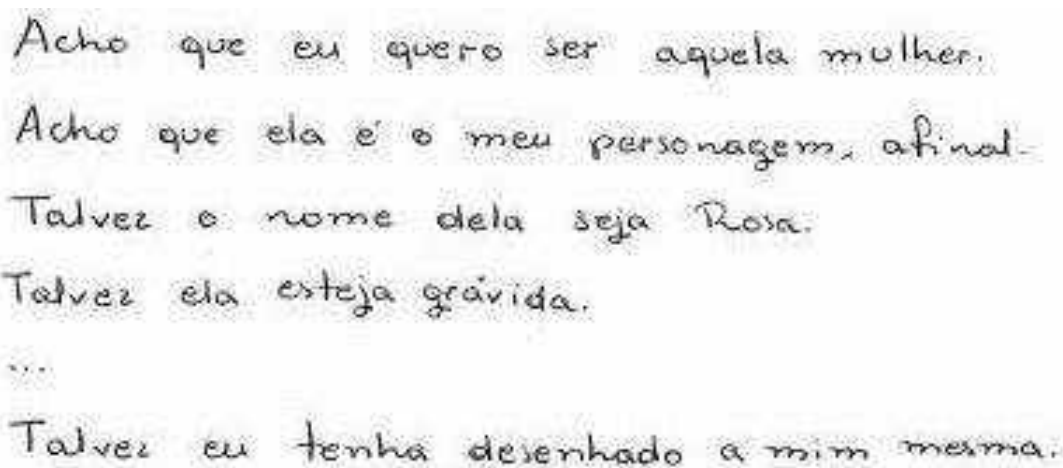 Acho que eu quero ser aquela mulher.
Acho que ela é o meu personagem, afinal.
Talvez o nome dela seja Rosa.
Talvez ela esteja grávida.
...
Talvez eu tenha desenhado a mim mesma.